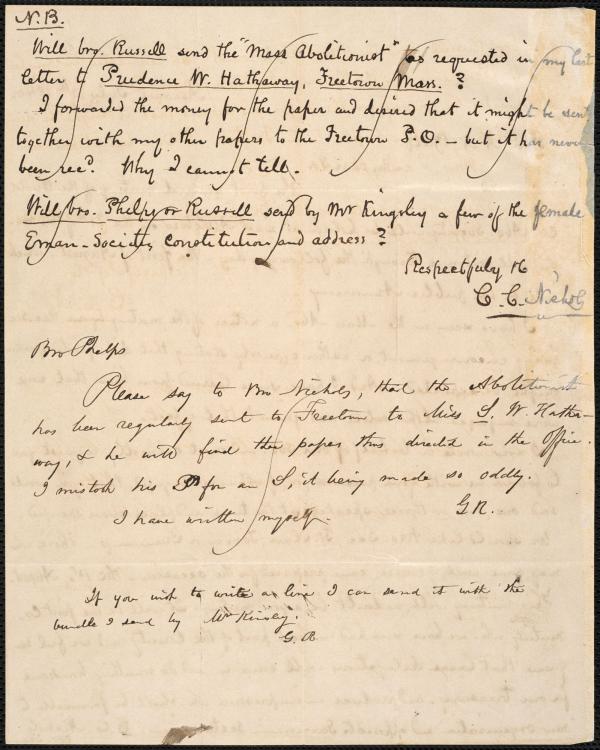 N.B.
Will bro. Russell send the "Mass Abolitionist" as requested in my last
letter to Prudence W. Hathaway, Freetown Mass. ?
I forwarded the money for the paper and desired that it might be sent
together with my other papers to the Freetown P.O. — but it has never
been recd. Why I cannot tell.
Will bro. Phelps or Russell send by Mr Kingsley a few of the female
Eman. Society constitution and address?
Respectfully &c
C. C. Nichols
Bro Phelps
Please say to Bro Nichols, that the Abolitionist
has been regularly sent to Freetown to Miss S. W. Hatha-
way, & he will find the paper thus directed in the office.
I mistook his P for an S, it being made so oddly.
I have written myself. G R.
If you wish to write a line I can send it with the
bundle I send by Mr Kinsley.
G. R.